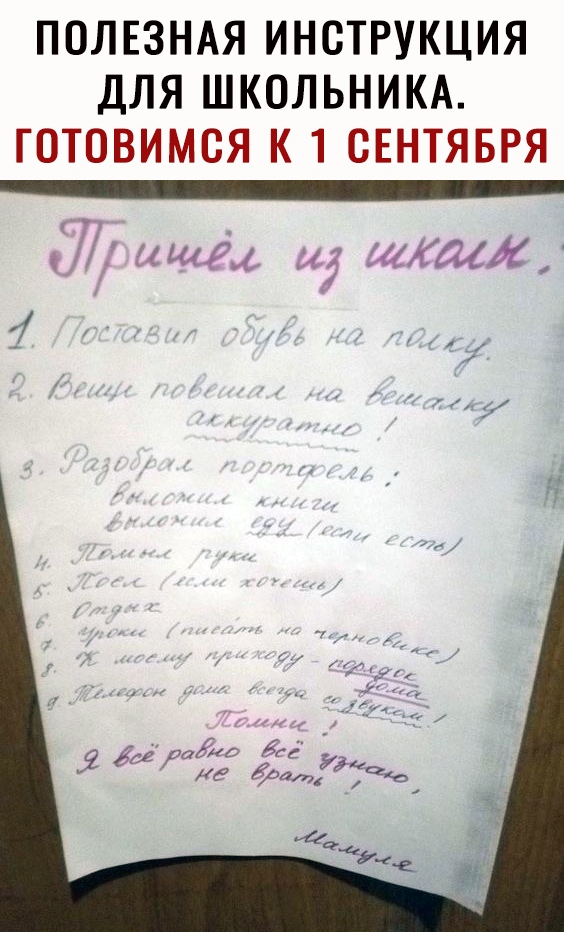 ПОЛЕЗНАЯ ИНСТРУКЦИЯ
ДЛЯ ШКОЛЬНИКА.
ГОТОВИМСЯ К 1 СЕНТЯБРЯ
Пришёл из школы:
1. Поставил обувь на полку.
2. Вещи повешал на вешалку
аккуратно!
3. Разобрал портфель:
выложил книги
выложил еду (если есть)
4. Помыл руки
5. Поел (если хочешь)
6. Отдых
7. Уроки (писать на черновике)
8. К моему приходу - порядок
дома
9. Телефон дома всегда со звуком!
Помни!
Я всё равно всё узнаю,
не врать!
Мамуля